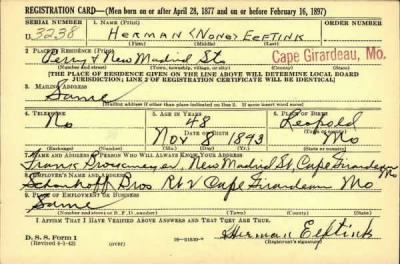 REGISTRATION CARD—(Men born on or after April 28, 1877 and on or before February 16, 1897)
SERIAL NUMBER 1. NAME (Print) ORDER NUMBER
U 3238 HERMAN (NONE) EEFTINK
(First) (Middle) (Last)
2. PLACE OF RESIDENCE (Print)
Perry & New Madrid Sts Cape Girardeau, Mo.
(Number and street) (Town, township, village, or city) (County) (State)
[THE PLACE OF RESIDENCE GIVEN ON THE LINE ABOVE WILL DETERMINE LOCAL BOARD
JURISDICTION; LINE 2 OF REGISTRATION CERTIFICATE WILL BE IDENTICAL]
3. MAILING ADDRESS
Same
[Mailing address if other than place indicated on line 2. If same insert word same]
4. TELEPHONE 5. AGE IN YEARS 6. PLACE OF BIRTH
No 48 Leopold
DATE OF BIRTH
Nov 8 1893 Mo
(Exchange) (Number) (Mo.) (Day) (Yr.) (State or country)
7. NAME AND ADDRESS OF PERSON WHO WILL ALWAYS KNOW YOUR ADDRESS
Frank New Madrid St, Cape Girardeau Mo
8. EMPLOYER'S NAME AND ADDRESS
Bros Rt 2 Cape Girardeau Mo
9. PLACE OF EMPLOYMENT OR BUSINESS
Same
(Number and street or R. F. D. number) (Town) (County) (State)
I AFFIRM THAT I HAVE VERIFIED ABOVE ANSWERS AND THAT THEY ARE TRUE.
D. S. S. Form 1
(Revised 4-1-42) (over) Herman Eeftink
(Registrant's signature)